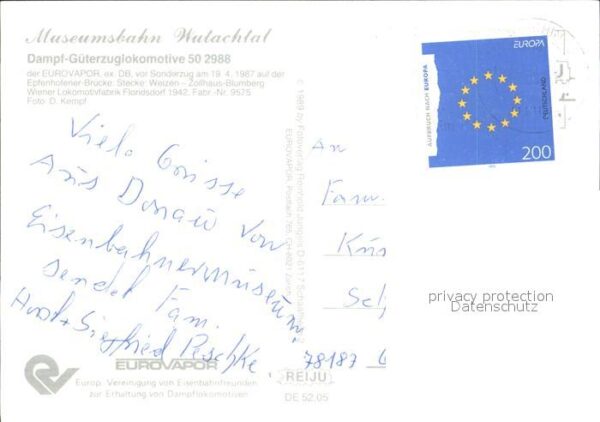 Museumsbahn Wutachtal
Dampf-Güterzuglokomotive 50 2988
der EUROVAPOR, ex. DB, vor Sonderzug am 19. 4. 1987 auf der
Epfenhofener-Brücke. Stecke: Weizen - Zollhaus-Blumberg
Wiener Lokomotivfabrik Floridsdorf 1942. Fabr.-Nr. 9575
Foto: D. Kempf
Viele Grüsse
Aus Donau von
Eisenbahnermuseum,
sendet Fam.
Horst + Siegfried Peschke.
EUROVAPOR
Europ. Vereinigung von Eisenbahnfreunden
zur Erhaltung von Dampflokomotiven
REIJU
DE 52.05
© 1989 by Fotoverlag
EUROVAPOR, Postfach
EUROPA
AUFBRUCH NACH EUROPA
DEUTSCHLAND
200
An
Fam.
Kün
78187
privacy protection
Datenschutz